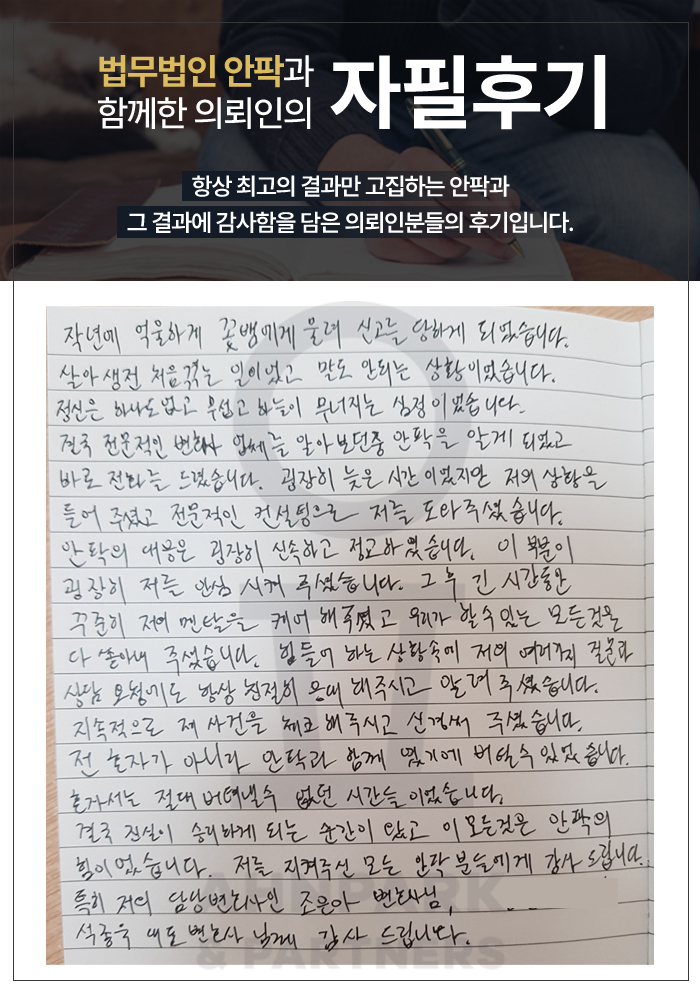 법무법인 안팍과
함께한 의뢰인의
자필후기
항상 최고의 결과만 고집하는 안팍과
그 결과에 감사함을 담은 의뢰인분들의 후기입니다.
작년에 억울하게 꽃뱀에게 물려 신고를 당하게 되었습니다.
살아생전 처음겪는 일이었고 말도 안되는 상황이었습니다.
정신은 하나도 없고 무섭고 하늘이 무너지는 심정이었습니다.
결국 전문적인 변호사 업체를 알아보던중 안팍을 알게 되었고
바로 전화를 드렸습니다. 굉장히 늦은 시간이었지만 저의 상황을
들어 주셨고 전문적인 컨설팅으로 저를 도와주셨습니다.
안팍의 대응은 굉장히 신속하고 정교하였습니다. 이 부분이
굉장히 저를 안심 시켜 주셨습니다. 그 후 긴 시간동안
꾸준히 저의 멘탈을 케어 해주셨고 우리가 할수있는 모든것을
다 쏟아내 주셨습니다. 힘들어 하는 상황속에 저의 여러가지 질문과
상담 요청에도 항상 친절히 응대 해주시고 알려주셨습니다.
지속적으로 제 사건을 체크해주시고 신경써 주셨습니다.
전 혼자가 아니라 안팍과 함께 였기에 버틸수 있었습니다.
혼자서는 절대 버텨낼수 없던 시간들이었습니다.
결국 진실이 승리하게 되는 순간이 왔고 이 모든것은 안팍의
힘이었습니다. 저를 지켜주신 모든 안팍 분들에게 감사 드립니다.
특히 저의 담당변호사인 조은아 변호사님,
석종욱 대표변호사님께 감사 드립니다.
AHNPARK
& PARTNERS